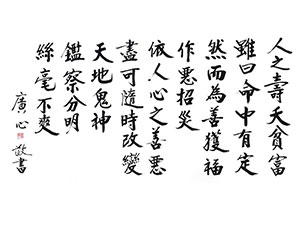 人之壽夭貧富
雖曰命中有定
然而為善獲福
作惡招災
依人心之善惡
盡可隨時改變
天地鬼神
鑑察分明
絲毫不爽
廣心
敬書